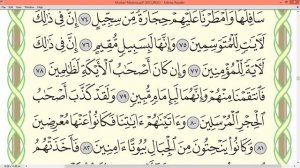 سَافِلَهَا وَأَمْطَرْنَا عَلَيْهِمْ حِجَارَةً مِّن سِجِّيلٍ ٧٤ إِنَّ فِي ذَٰلِكَ
لَآيَاتٍ لِّلْمُتَوَسِّمِينَ ٧٥ وَإِنَّهَا لَبِسَبِيلٍ مُّقِيمٍ ٧٦ إِنَّ فِي ذَٰلِكَ
لَآيَةً لِّلْمُؤْمِنِينَ ٧٧ وَإِن كَانَ أَصْحَابُ الْأَيْكَةِ لَظَالِمِينَ ٧٨
فَانتَقَمْنَا مِنْهُمْ وَإِنَّهُمَا لَبِإِمَامٍ مُّبِينٍ ٧٩ وَلَقَدْ كَذَّبَ أَصْحَابُ
الْحِجْرِ الْمُرْسَلِينَ ٨٠ وَآتَيْنَاهُمْ آيَاتِنَا فَكَانُوا عَنْهَا مُعْرِضِينَ
٨١ وَكَانُوا يَنْحِتُونَ مِنَ الْجِبَالِ بُيُوتًا آمِنِينَ ٨٢ فَأَخَذَتْهُمُ